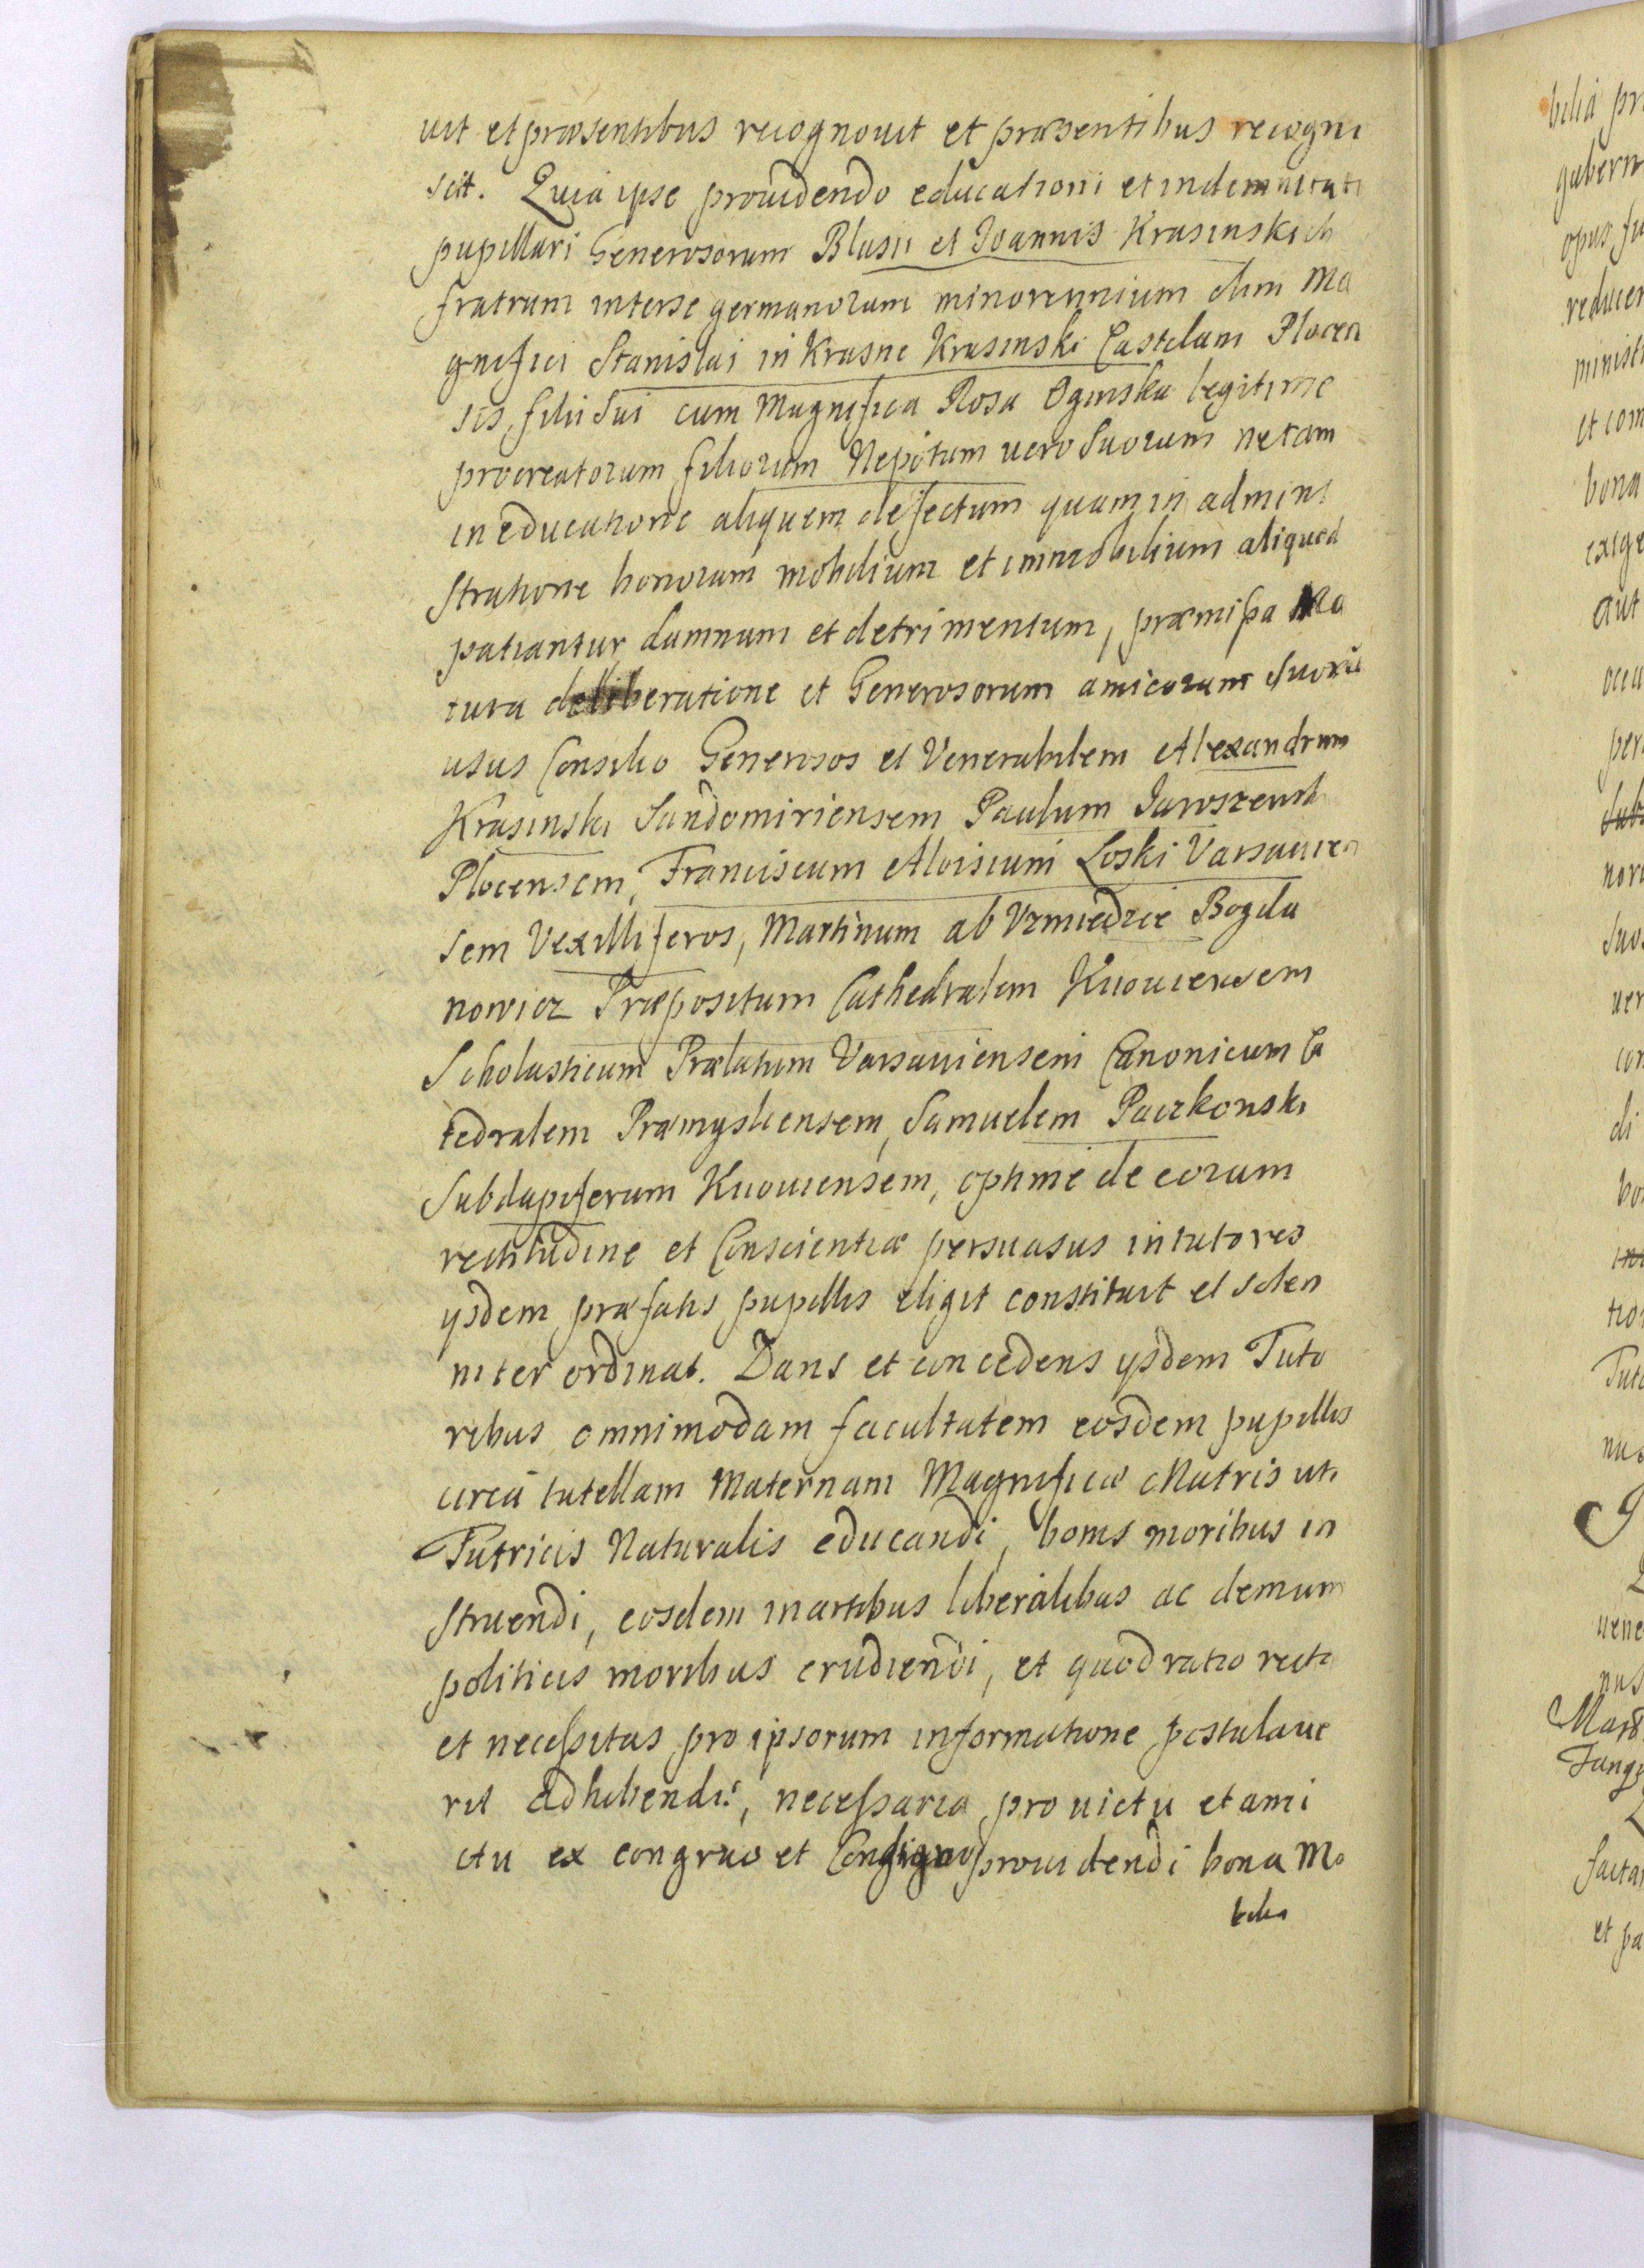 uit et præsentibus recognouit et præsentibus recogni
scit. Quia ipse prouidendo educationi et indemnitati
pupillari Generosorum Blasii et Joannis Krasinskich
fratrum interse germanorum minorennium olim Ma
gnifici Stanislai in Krasne Krasinski Castelani Plocen
sis, filii Sui cum Magnifica Rosa Oginska legitime
procreatorum filiorum Nepotum uero Suorum ne tam
in educatione aliquem defectum quam in admini
stratione bonorum mobilium et immobilium aliquod
patiantur damnum et detrimentum, præmißa Ma
tura deliberatione et Generosorum amicorum Suorũ
usus Consilio Generosos et Venerabilem Alexandrum
Krasinski Sandomiriensem Paulum Jaroszewski
Plocensem, Franciscum Aloisium Łoski Varsauien
sem Vexilliferos, Martinum ab Vzmiedzie Bogda
nowicz Præpositum Cathedralem Kiiouiensem
Scholasticum Prælatum Varsauiensem Canonicum Ca
tedralem Præmysliensem, Samuelem Paczkowski
Subdapiferum Kiiouiensem, optime de eorum
rectitudine et Conscientiæ persuasus in tutores
ysdem præfatis pupillis eligit constituit et solen
niter ordinat. Dans et concedens ysdem Tuto
ribus omnimodam facultatem eosdem pupillos
circa tutellam Maternam Magnificæ Matris uti
Tutricis Naturalis educandi, bonis moribus in
struendi, eosdem in artibus liberalibus ac demum
politicis moribus erudiendi, et quod ratio recta
et neceßitas pro ipsorum informatione postulaue
rit adhibendi, neceßaria pro uictu et ami
ctu ex congruo et Condigno prouidendi bona Mo
bilia
bilia pr
gubern
opus fu
reducen
minist
et com
bona
exige
aut
occu
per
nor
suos
uer
con
di
bo
tio
Tuto
nus
uene
nus
factam
et pa